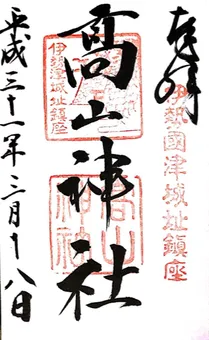 奉拝
伊勢國津城址鎮座
伊勢津城址鎮座
高山神社
高山神社
平成三十一年三月十八日